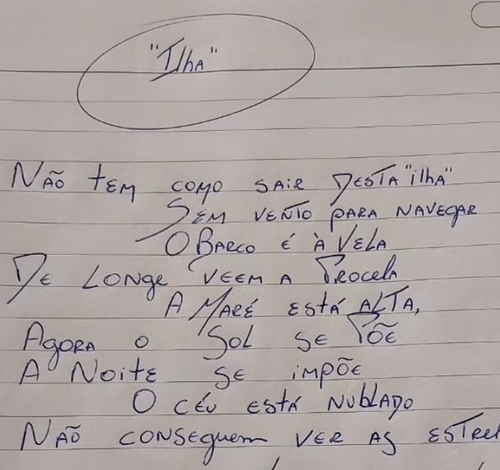 "Ilha"
Não tem como sair desta "ilha"
Sem vento para navegar
O Barco é à vela
De longe veem a Procela
A Maré está alta,
Agora o Sol se Põe
A Noite se impõe
O céu está nublado
Não conseguem ver as